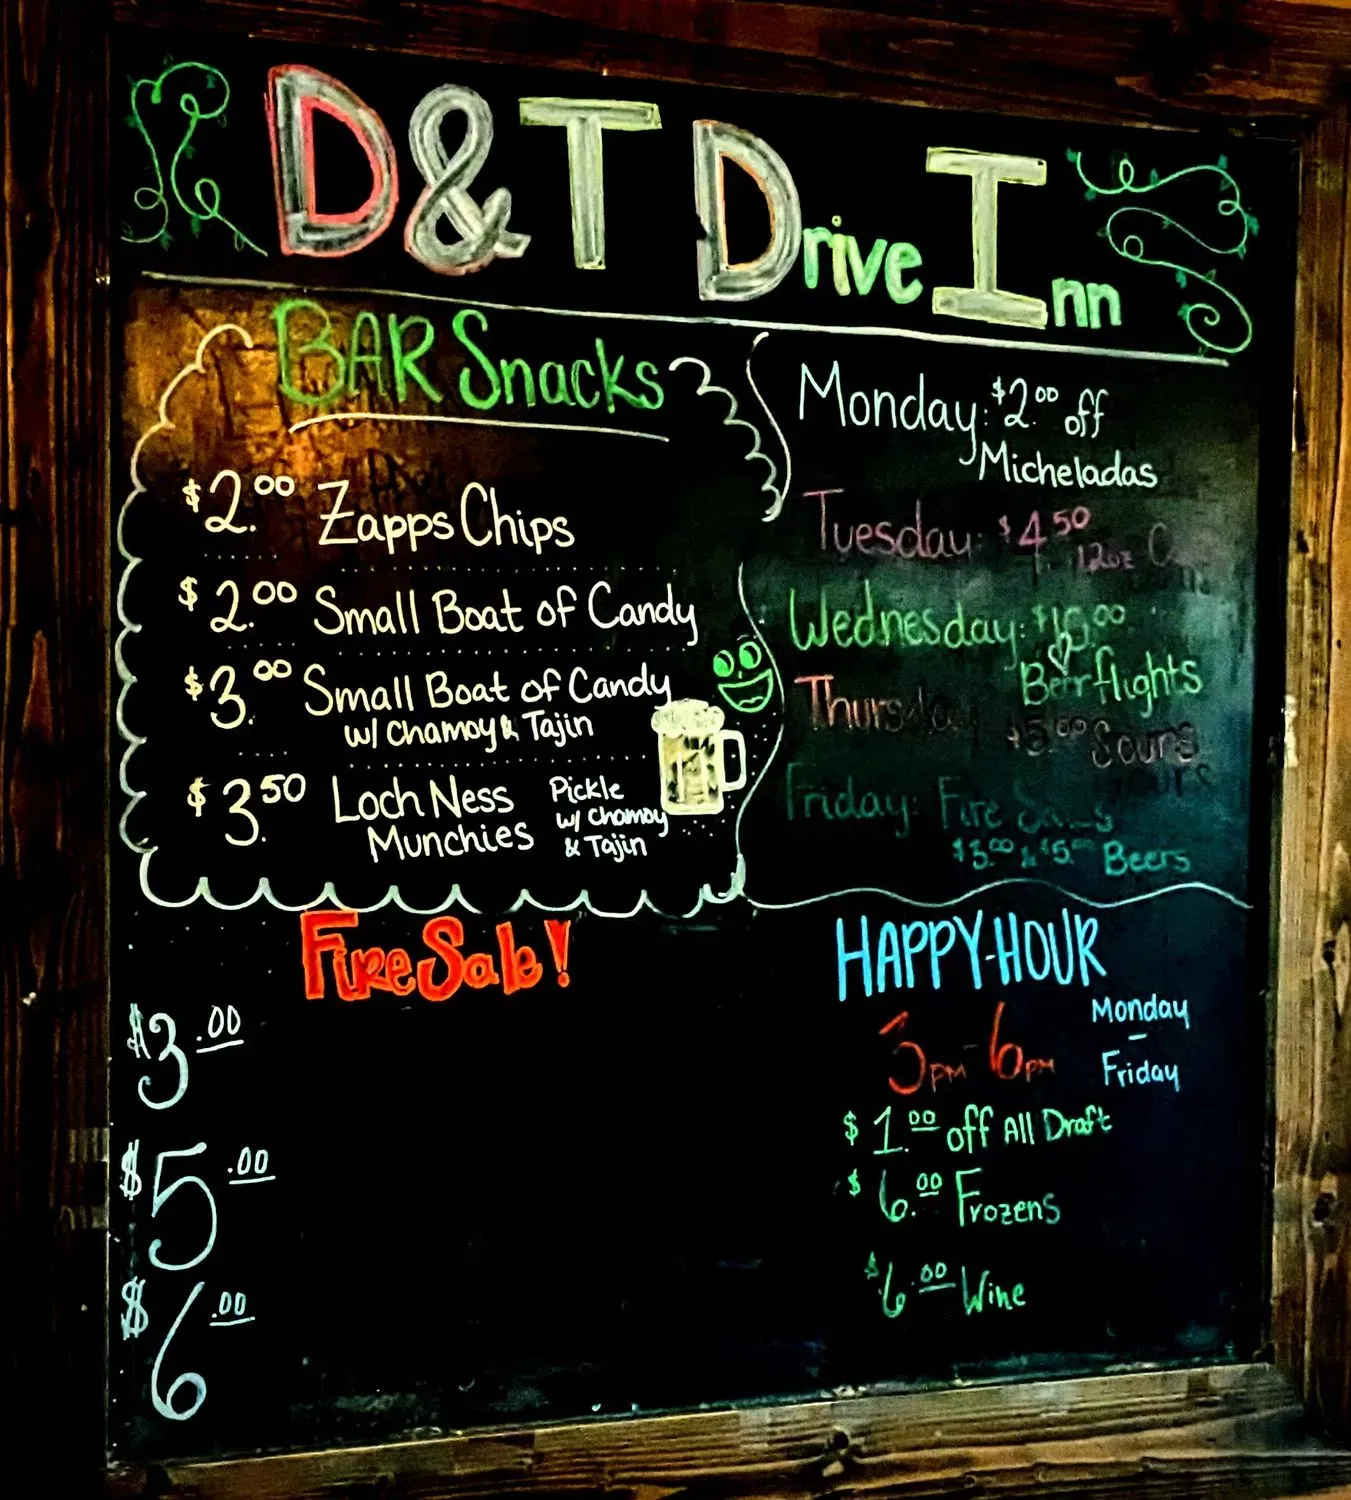 D&T Drive Inn
BAR Snacks
$2.00 Zapps Chips
$2.00 Small Boat of Candy
$3.00 Small Boat of Candy
w/ Chamoy & Tajin
$3.50 Loch Ness
Munchies
Pickle
w/ Chamoy
& Tajin
Monday: $2.00 off
Micheladas
Tuesday: $4.50
12oz
Wednesday:
Beer flights
Thursday
$5.00 Sours
Friday: Fire
$3.00 & $5.00 Beers
Fire Sale!
$3.00
$5.00
$6.00
HAPPY-HOUR
3pm-6pm
Monday
-
Friday
$1.00 off All Draft
$6.00 Frozens
$6.00 Wine